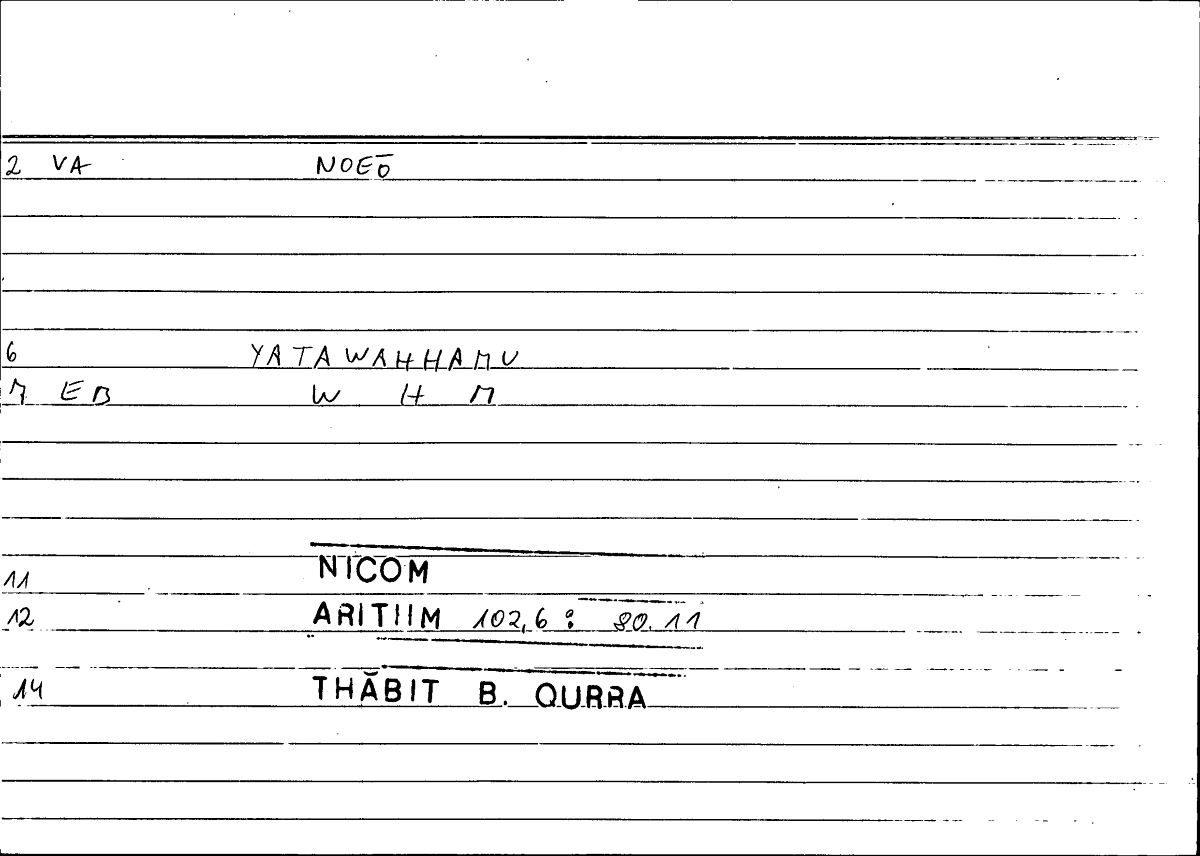 2 VA NOEŌ
6 YATAWAHHAMU
7 EB W H M
11 NICOM
12 ARITIIM 102,6 : 80.11
14 THĂBIT B. QURRA